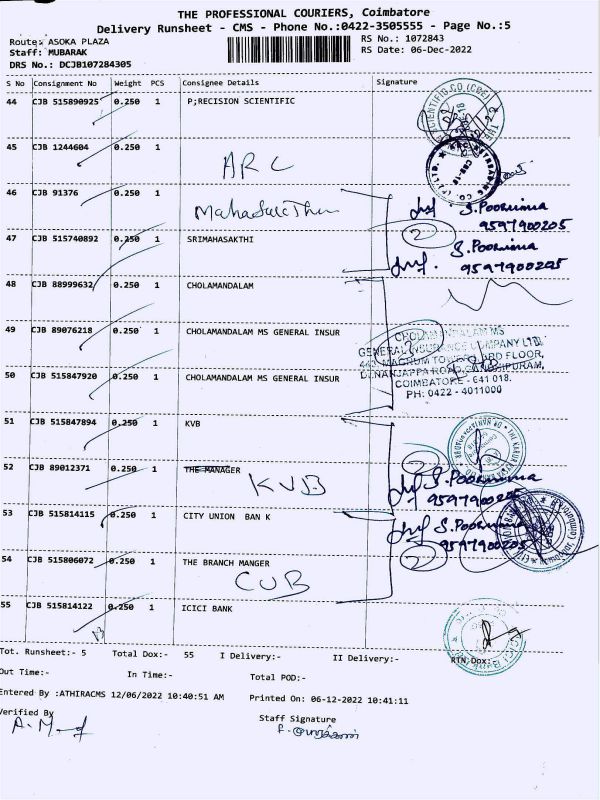 THE PROFESSIONAL COURIERS, Coimbatore
Delivery Runsheet - CMS - Phone No.:0422-3505555 - Page No.:5
Route: ASOKA PLAZA
RS No.: 1072843
Staff: MUBARAK
RS Date: 06-Dec-2022
DRS No.: DCJB107284305
S No Consignment No Weight PCS Consignee Details Signature
44 CJB 515890925 0.250 1 P;RECISION SCIENTIFIC
45 CJB 1244604 0.250 1
ARC
46 CJB 91376 0.250 1
S.Poornima
9597900205
2
47 CJB 515740892 0.250 1 SRIMAHASAKTHI
S.Poornima
9597900205
48 CJB 88999632 0.250 1 CHOLAMANDALAM
49 CJB 89076218 0.250 1 CHOLAMANDALAM MS GENERAL INSUR
CHOLAMANDALAM MS
GENERAL INSURANCE COMPANY LTD.
50 CJB 515847920 0.250 1 CHOLAMANDALAM MS GENERAL INSUR
COIMBATORE - 641 018.
PH: 0422 - 4011000
51 CJB 515847894 0.250 1 KVB
2
52 CJB 89012371 0.250 1 THE MANAGER
KVB
S.Poornima
9597900205
53 CJB 515814115 0.250 1 CITY UNION BAN K
S.Poornima
9597900205
54 CJB 515806072 0.250 1 THE BRANCH MANGER
2
CUB
55 CJB 515814122 0.250 1 ICICI BANK
Tot. Runsheet:- 5 Total Dox:- 55 I Delivery:- II Delivery:- RTN Dox:
Out Time:- In Time:- Total POD:-
Entered By :ATHIRACMS 12/06/2022 10:40:51 AM Printed On: 06-12-2022 10:41:11
Verified By
Staff Signature